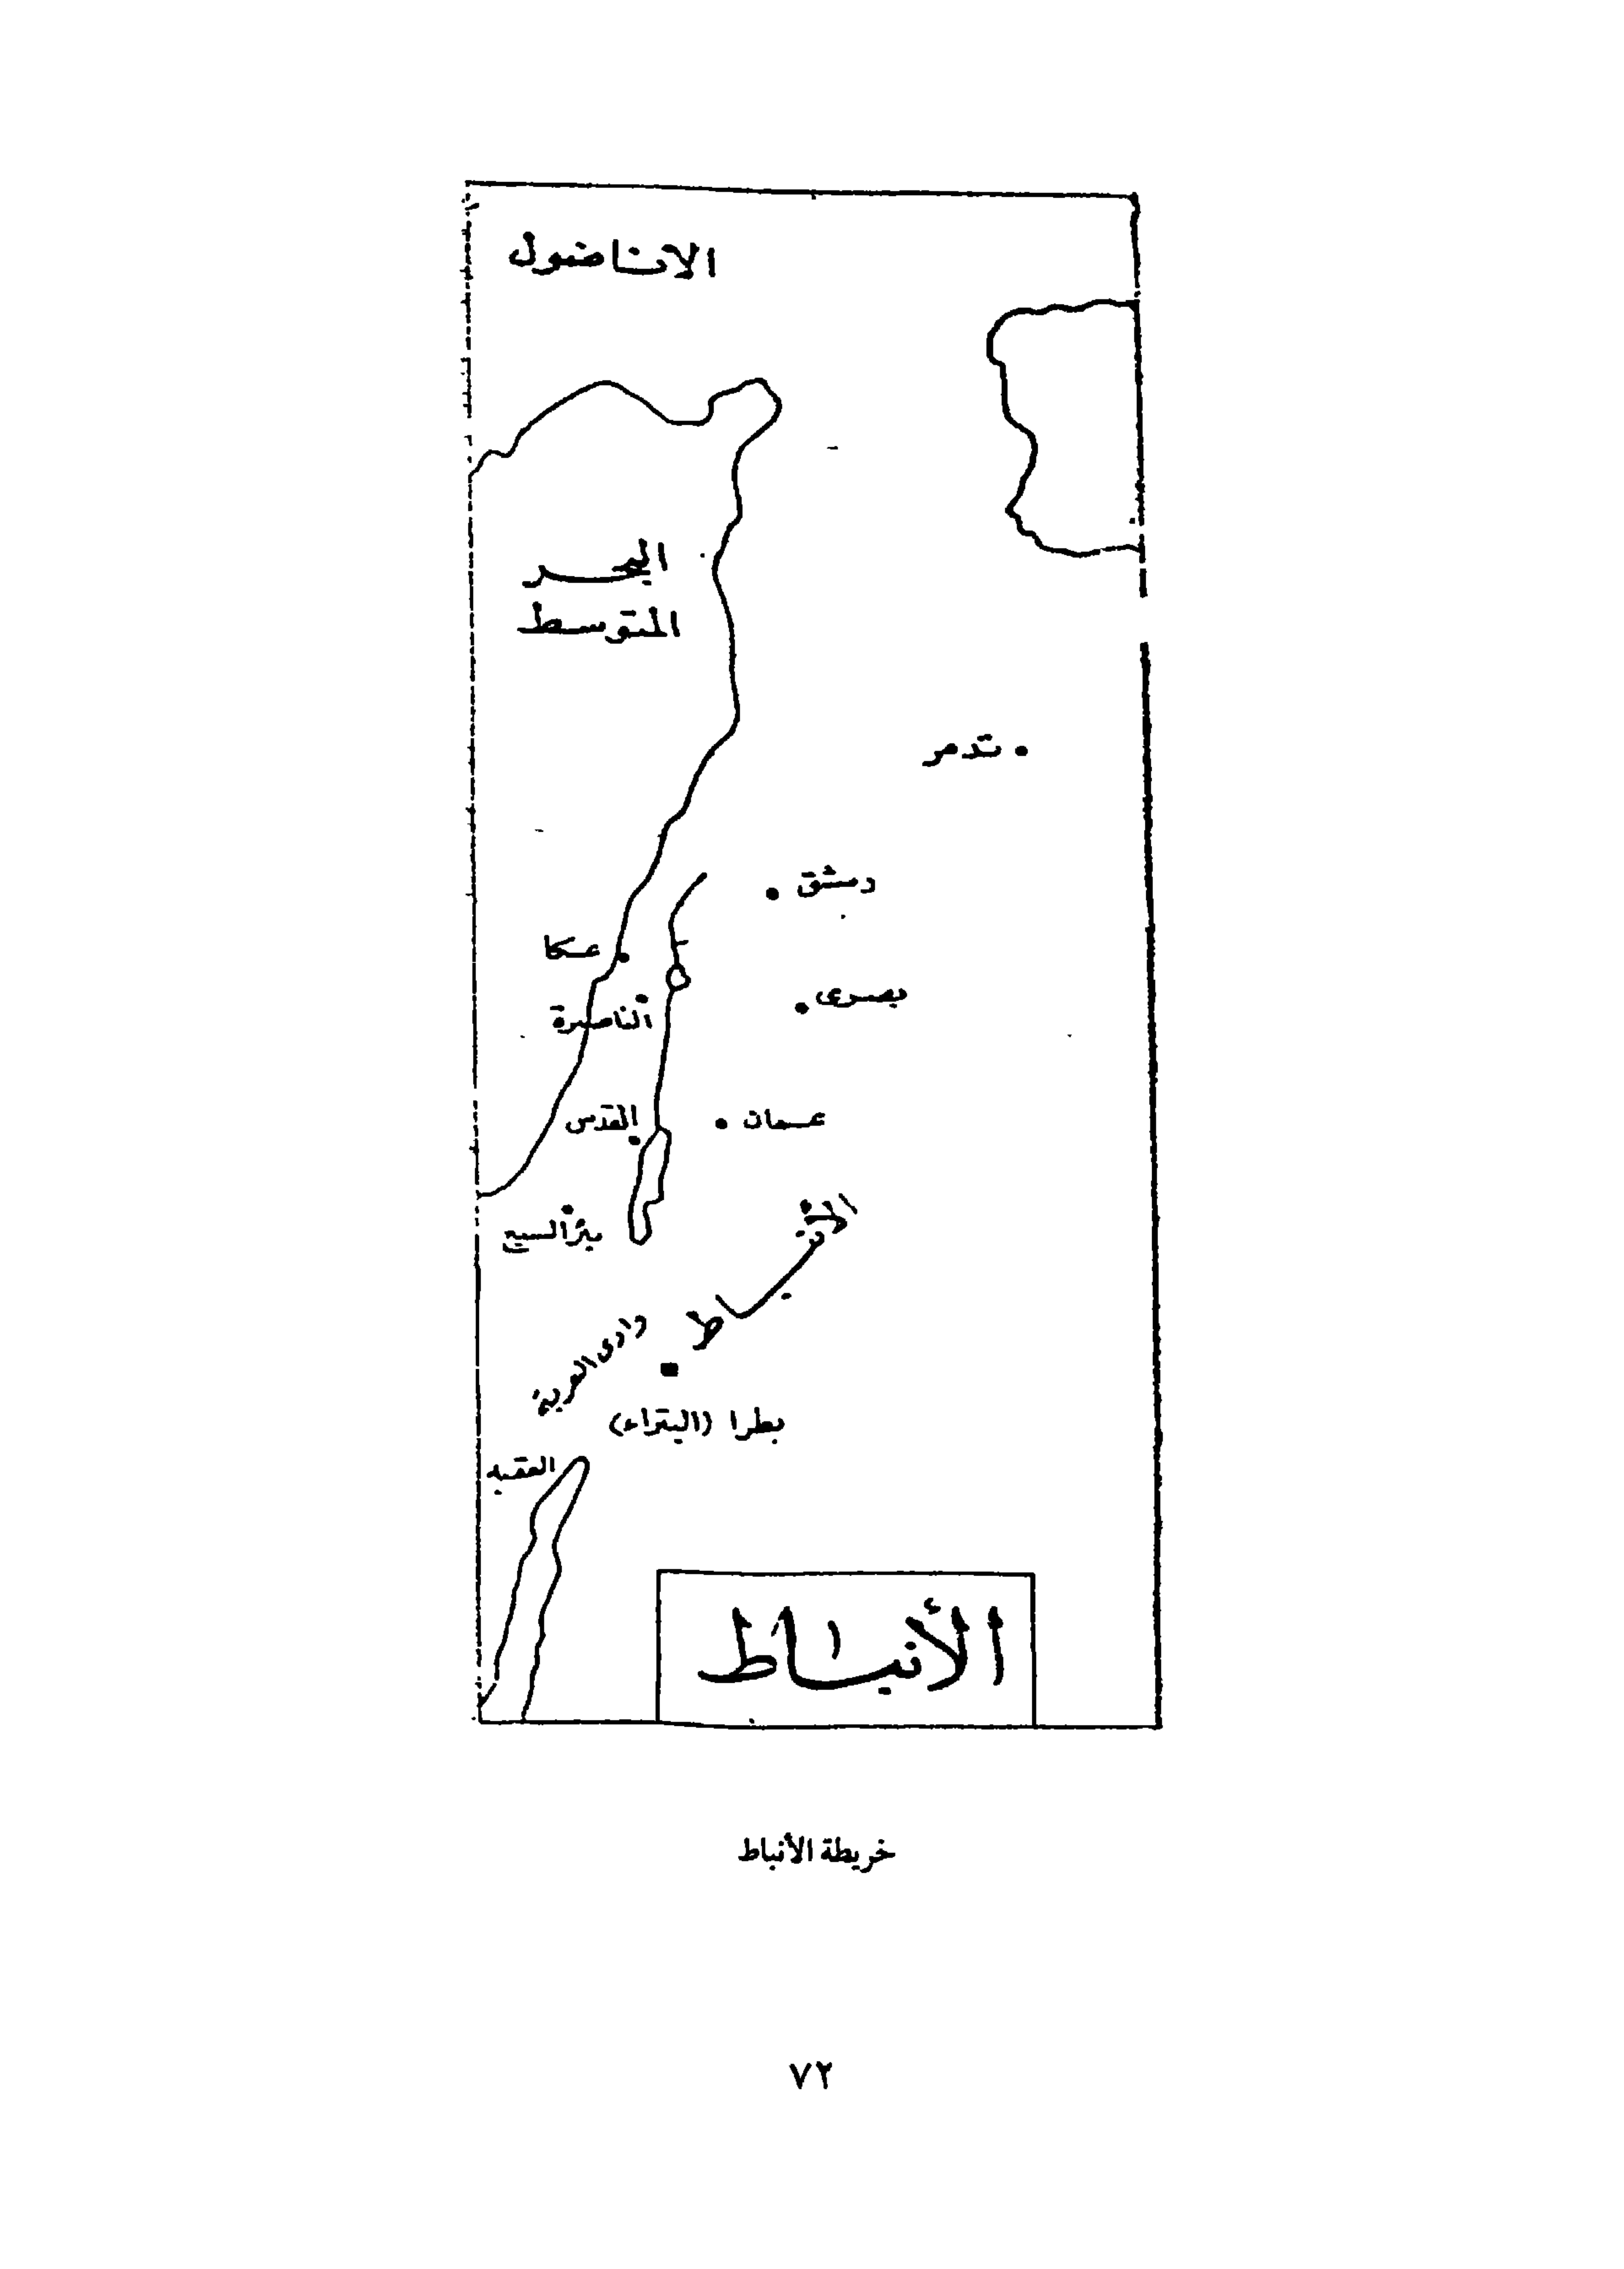 الاناضول
البحر
المتوسط
تدمر
دمشق
عكا
بصرى
الناصرة
القدس
عمان
بئر السبع
الأنباط
وادى العربة
بطرا (البتراء)
العقبة
الأنباط
خريطة الأنباط
٧٢